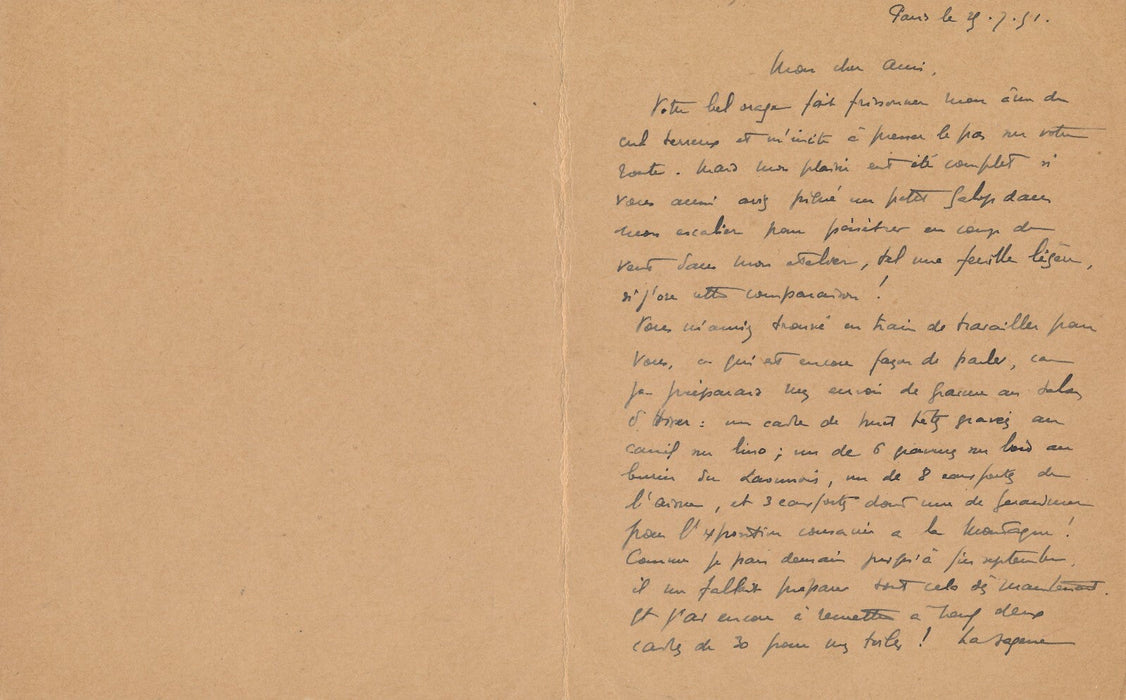 Paris le 29.7.51.
Mon cher Ami,
Votre bel orage fait frissonner mon âme de
cul terreux et m'incite à presser le pas sur votre
route. Mais mon plaisir eut été complet si
vous aussi aviez piqué un petit galop dans
mon escalier pour pénétrer en coup de
vent dans mon atelier, tel une feuille légère,
si j'ose cette comparaison !
Vous m'auriez trouvé en train de travailler pour
vous, ce qui est encore façon de parler, car
je préparais mes envois de gravure au Salon
d'Hiver : un cadre de huit têtes gravées au
canif sur lino ; un de 6 gravures sur bois au
burin du Laonnois, un de 8 eaux fortes de
l'Aisne, et 3 eaux fortes dont une de Gerardmer
pour l'Exposition consacrée a la Montagne !
Comme je pars demain jusqu'à fin septembre,
il me fallait préparer tout cela dès maintenant.
Et j'ai encore à remettre a neuf deux
cadres de 30 pour mes toiles ! La sagesse